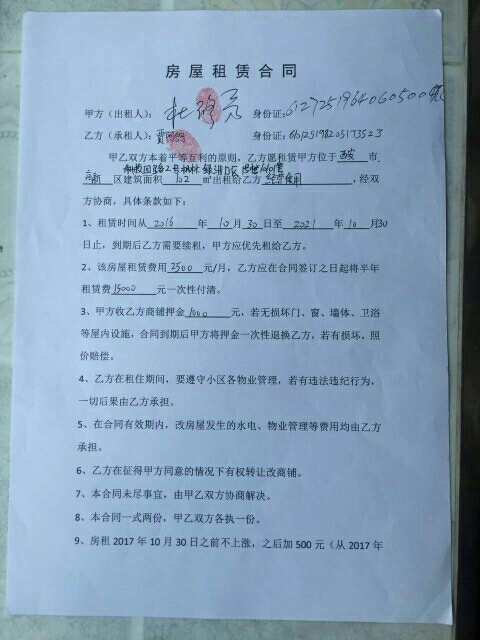 房屋租赁合同
甲方（出租人）： 身份证：
乙方（承租人）： 身份证：610125198205173523
甲乙双方本着平等互利的原则，乙方愿租赁甲方位于 西安 市
高新 区建筑面积 102 ㎡出租给乙方 经营使用 ，经双
方协商，具体条款如下：
1、租赁时间从 2016 年 10 月 30 日至 2021 年 10 月30
日止，到期后乙方需要续租，甲方应优先租给乙方。
2、该房屋租赁费用 2500 元/月，乙方应在合同签订之日起将半年
租赁费 15000 元一次性付清。
3、甲方收乙方商铺押金 1000 元，若无损坏门、窗、墙体、卫浴
等屋内设施，合同到期后甲方将押金一次性退换乙方，若有损坏，照
价赔偿。
4、乙方在租住期间，要遵守小区各物业管理，若有违法违纪行为，
一切后果由乙方承担。
5、在合同有效期内，改房屋发生的水电、物业管理等费用均由乙方
承担。
6、乙方在征得甲方同意的情况下有权转让改商铺。
7、本合同未尽事宜，由甲乙双方协商解决。
8、本合同一式两份，甲乙双方各执一份。
9、房租 2017 年 10 月 30 日之前不上涨，之后加 500 元（从 2017 年